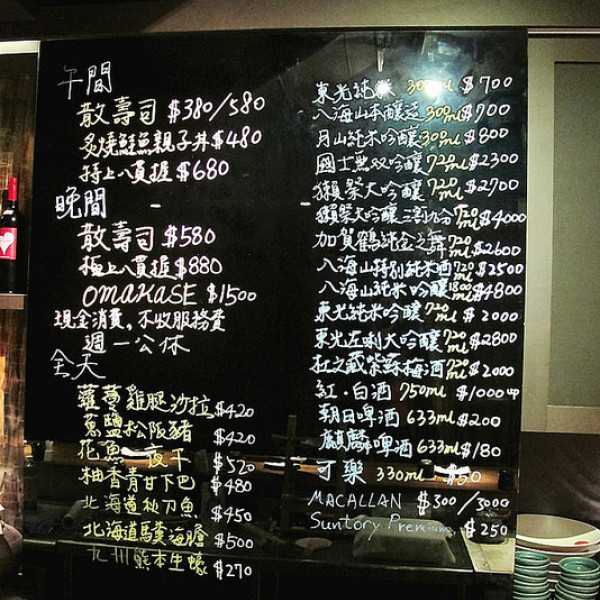 午間
散壽司 $380/580
炙燒鮭魚親子丼 $480
特上八貫握 $680
晚間
散壽司 $580
極上八貫握 $880
OMAKASE $1500
現金消費,不收服務費
週一公休
全天
蘿蔓雞腿沙拉 $420
蔥鹽松阪豬 $420
花魚一夜干 $520
柚香青甘下巴 $480
北海道秋刀魚 $450
北海道馬糞海膽 $500
九州熊本生蠔 $270
東光純米 300ml $700
八海山本釀造 300ml $700
月山純米吟釀 300ml $800
國士無双吟釀 720ml $2300
獺祭大吟釀 720ml $2700
獺祭大吟釀 三割九分 720ml $4000
加賀鶴純金之舞 720ml $2600
八海山特別純米酒 720ml $2500
八海山純米吟釀 1800ml $4800
東光純米吟釀 720ml $2000
東光左喇大吟釀 720ml $2800
杜之藏紫蘇梅酒 720ml $2000
紅.白酒 750ml $1000up
朝日啤酒 633ml $200
麒麟啤酒 633ml $180
可樂 330ml $50
MACALLAN $300/3000
Suntory Premium $250